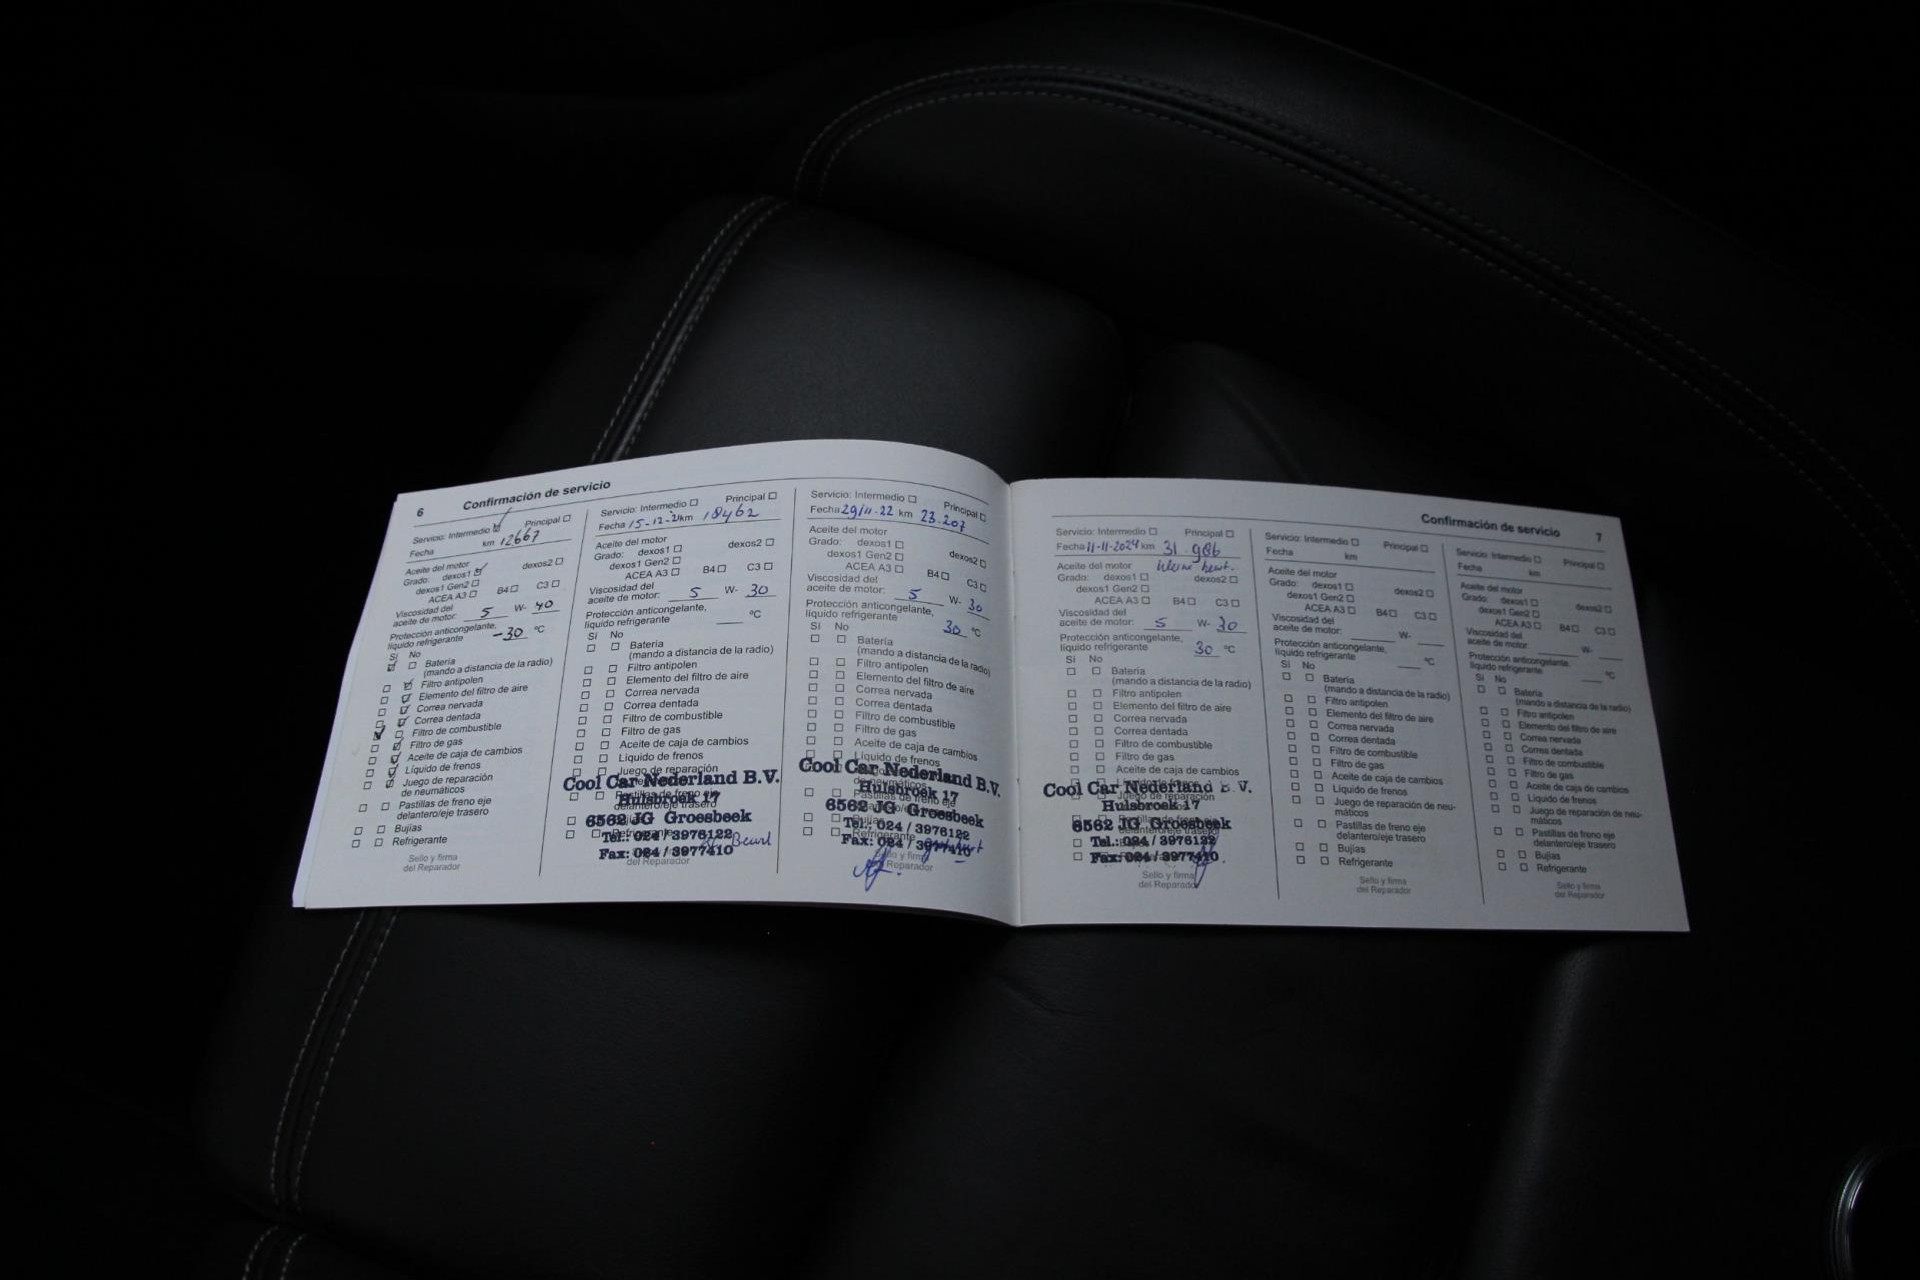 6 Confirmación de servicio
Servicio: Intermedio Principal
Fecha km 12667
Aceite del motor
Grado: dexos1 dexos2
dexos1 Gen2
ACEA A3 B4 C3
Viscosidad del
aceite de motor: 5 W- 40
Protección anticongelante,
líquido refrigerante -30 ºC
Sí No
Batería
(mando a distancia de la radio)
Filtro antipolen
Elemento del filtro de aire
Correa nervada
Correa dentada
Filtro de combustible
Filtro de gas
Aceite de caja de cambios
Líquido de frenos
Juego de reparación
de neumáticos
Pastillas de freno eje
delantero/eje trasero
Bujías
Refrigerante
Sello y firma
del Reparador
Servicio: Intermedio Principal
Fecha 15-12-21 km 18462
Aceite del motor
Grado: dexos1 dexos2
dexos1 Gen2
ACEA A3 B4 C3
Viscosidad del
aceite de motor: 5 W- 30
Protección anticongelante,
líquido refrigerante ºC
Sí No
Batería
(mando a distancia de la radio)
Filtro antipolen
Elemento del filtro de aire
Correa nervada
Correa dentada
Filtro de combustible
Filtro de gas
Aceite de caja de cambios
Líquido de frenos
Juego de reparación
Cool Car Nederland B.V.
Pastillas de freno eje
Hulsbroek 17
delantero/eje trasero
6562 JG Groesbeek
Refrigerante
Tel.: 024 / 3976122
Fax: 024 / 3977410
del Reparador
Servicio: Intermedio Principal
Fecha 29/11-22 km 23.207
Aceite del motor
Grado: dexos1 dexos2
dexos1 Gen2
ACEA A3 B4 C3
Viscosidad del
aceite de motor: 5 W- 30
Protección anticongelante,
líquido refrigerante 30 ºC
Sí No
Batería
(mando a distancia de la radio)
Filtro antipolen
Elemento del filtro de aire
Correa nervada
Correa dentada
Filtro de combustible
Filtro de gas
Aceite de caja de cambios
Líquido de frenos
Cool Car Nederland B.V.
de neumáticos
Hulsbroek 17
Pastillas de freno eje
6562 JG Groesbeek
Bujías
Tel.: 024 / 3976122
Refrigerante
Fax: 024 / 3977410
Sello y firma
del Reparador
Confirmación de servicio 7
Servicio: Intermedio Principal
Fecha 11-11-2024 km 31.986
Aceite del motor
Grado: dexos1 dexos2
dexos1 Gen2
ACEA A3 B4 C3
Viscosidad del
aceite de motor: 5 W- 30
Protección anticongelante,
líquido refrigerante 30 ºC
Sí No
Batería
(mando a distancia de la radio)
Filtro antipolen
Elemento del filtro de aire
Correa nervada
Correa dentada
Filtro de combustible
Filtro de gas
Aceite de caja de cambios
Líquido de frenos
Cool Car Nederland B.V.
Juego de reparación
Hulsbroek 17
6562 JG Groesbeek
delantero/eje trasero
Tel.: 024 / 3976122
Fax: 024 / 3977410
Sello y firma
del Reparador
Servicio: Intermedio Principal
Fecha km
Aceite del motor
Grado: dexos1 dexos2
dexos1 Gen2
ACEA A3 B4 C3
Viscosidad del
aceite de motor: W-
Protección anticongelante,
líquido refrigerante ºC
Sí No
Batería
(mando a distancia de la radio)
Filtro antipolen
Elemento del filtro de aire
Correa nervada
Correa dentada
Filtro de combustible
Filtro de gas
Aceite de caja de cambios
Líquido de frenos
Juego de reparación de neu-
máticos
Pastillas de freno eje
delantero/eje trasero
Bujías
Refrigerante
Sello y firma
del Reparador
Servicio: Intermedio Principal
Fecha km
Aceite del motor
Grado: dexos1 dexos2
dexos1 Gen2
ACEA A3 B4 C3
Viscosidad del
aceite de motor: W-
Protección anticongelante,
líquido refrigerante ºC
Sí No
Batería
(mando a distancia de la radio)
Filtro antipolen
Elemento del filtro de aire
Correa nervada
Correa dentada
Filtro de combustible
Filtro de gas
Aceite de caja de cambios
Líquido de frenos
Juego de reparación de neu-
máticos
Pastillas de freno eje
delantero/eje trasero
Bujías
Refrigerante
Sello y firma
del Reparador